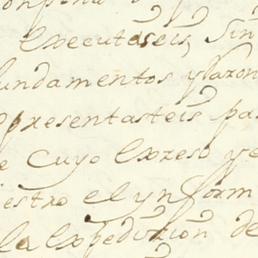 executaseis, sin
fundamentos y razon
presentasteis pa
e cuyo exceso y e
estro el ynform
la expedizion de